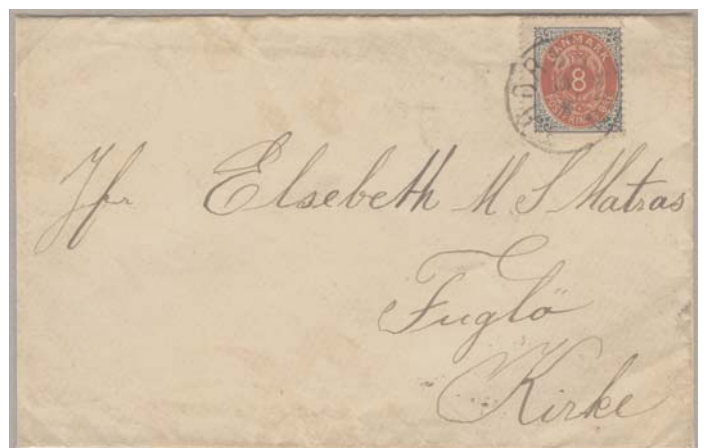 DANMARK
8
Jfr Elsebeth M S Matras
Fuglö
Kirke